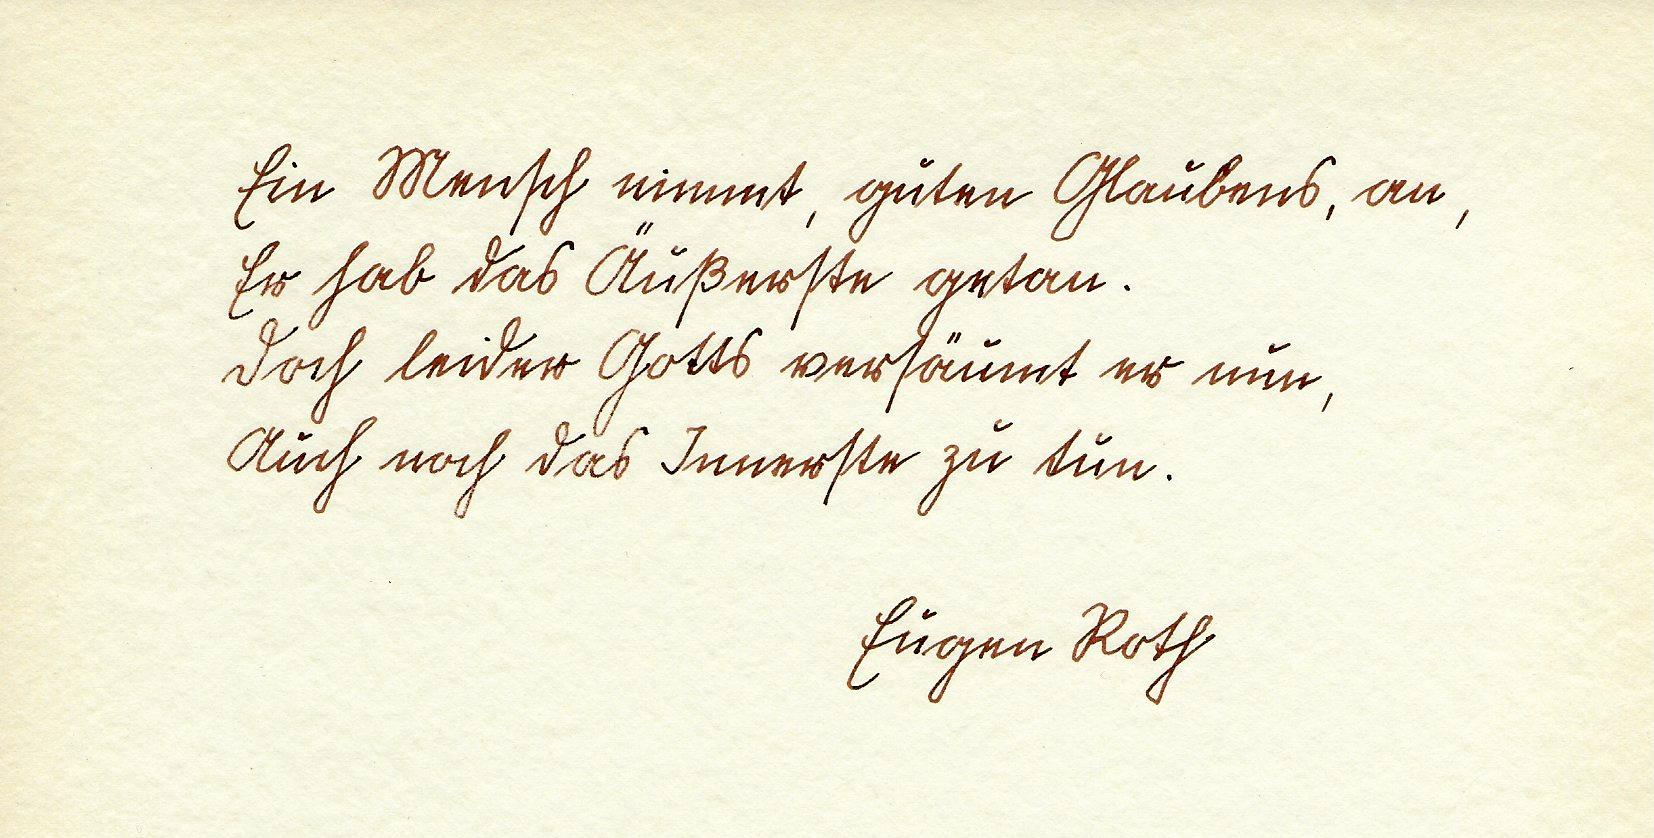 Ein Mensch nimmt, guten Glaubens, an,
Er hab das Äußerste getan.
Doch leider Gotts versäumt er nun,
Auch noch das Innerste zu tun.
Eugen Roth